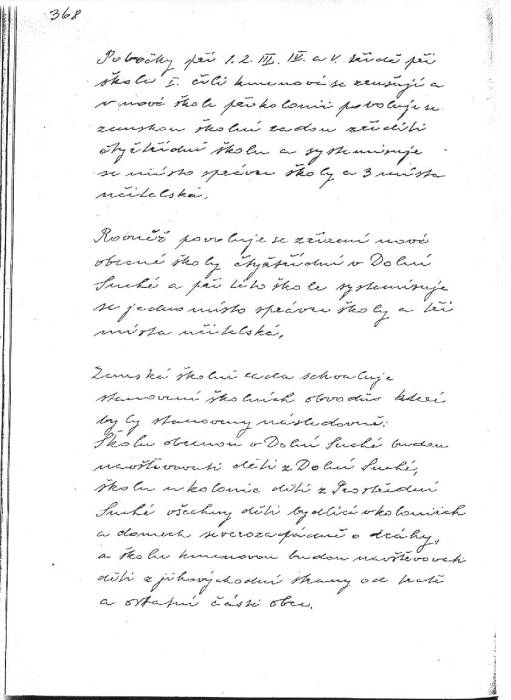 368
Pobočky při 1. 2. III. IV. a V. třídě při
škole I. čili kmenové se zrušují a
v nové škole při kolonii povoluje se
zemskou školní radou zříditi
čtyřtřídní školu a systemisuje
se místo správce školy a 3 místa
učitelská.
Rovněž povoluje se zřízení nové
obecné školy čtyřtřídní v Dolní
Suché a při této škole systemisuje
se jedno místo správce školy a tři
místa učitelská.
Zemská školní rada schvaluje
stanovení školních obvodů kteří
byly stanoveny následovně:
Školu obecnou v Dolní Suché budou
navštěvovati děti z Dolní Suché,
školu u kolonie děti z Prostřední
Suché všechny děti bydlící v koloniích
a domech severozápadně o dráhy,
a školu kmenovou budou navštěvovati
děti z jihovýchodní strany od tratě
a ostatní části obce.